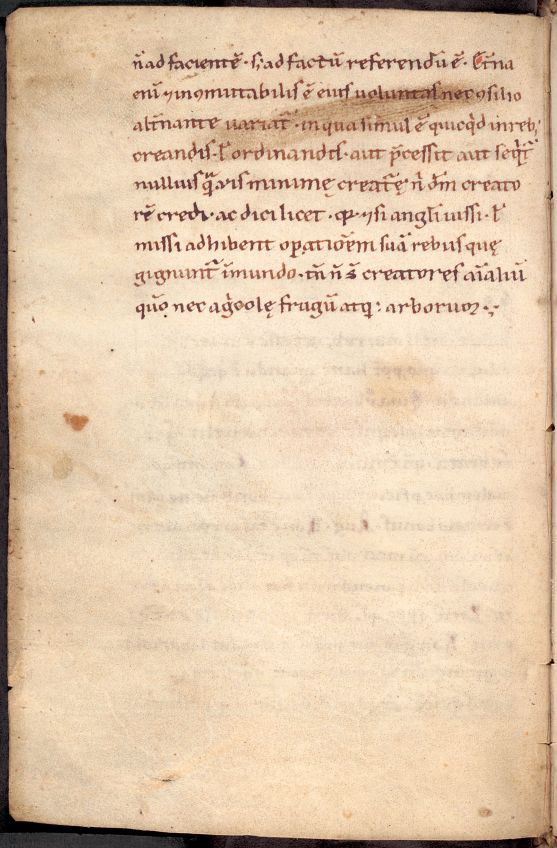 n̄ ad facientē · s; ad factū referendū ē · Et̄na
eni͂ ⁊ inⲥmutabilis ē eius uoluntas nec ꝯsilio
alt̄nante uariat᷑ · in qua simul ē quicq̇d in reb;
creandis · ł ordinandis · aut p̄cessit aut seq̇t᷑
nullius q̄ris minimę creat᷑ę n̄ dm̄ creato
rē credi · ac dici licet · q̨ ⁊ si angli iussi · ł
missi adhibent op̱atiōem suā rebus quę
gignunt᷑ ī mundo · tn̄ n̄ s̄ creatores aīaliū
quō nec ag̓colę frugū atq; arboruꝫ ·,·